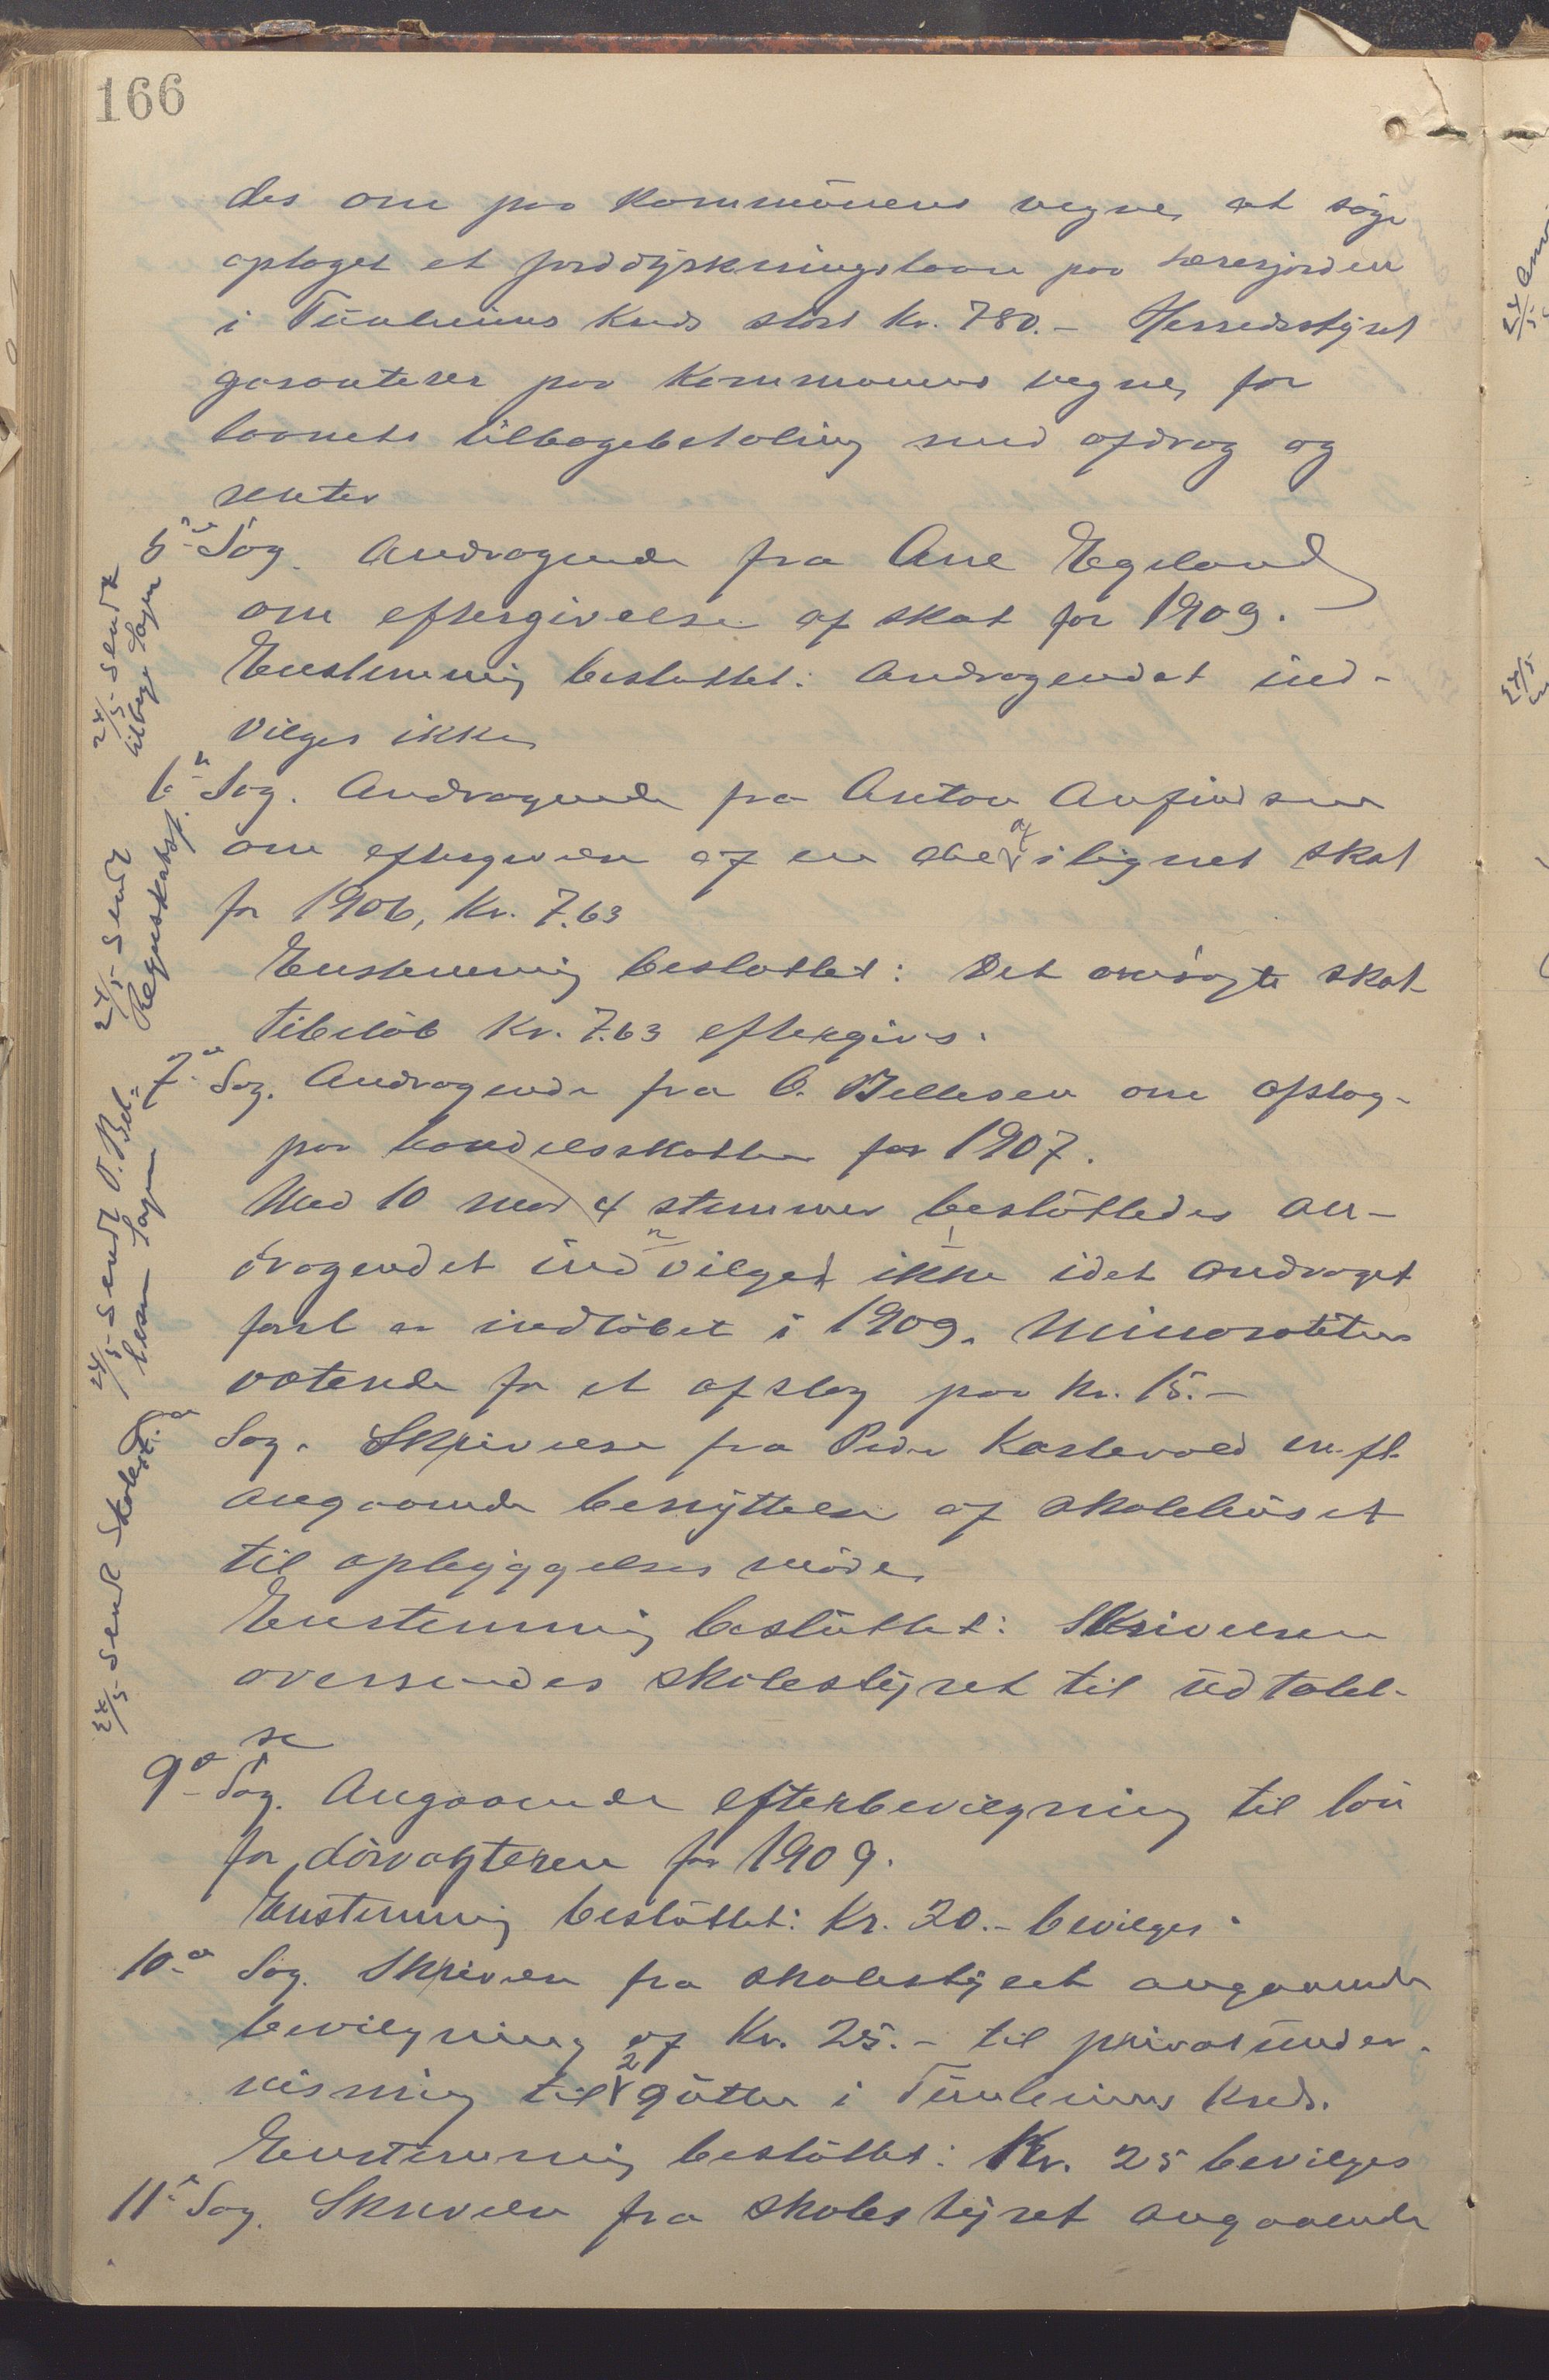 166
des om paa kommunens vegne at søge
optaget et jorddyrkningslaan paa lærerjorden
i Tunheims Kreds stort kr. 780.- Herredsstyret
garanterer paa kommunens vegne for
laanets tilbagebetaling med afdrag og
renter
5te Sag. Andragende fra Ane Egeland
om eftergivelse af skat for 1909.
Enstemmig besluttet: Andragendet ind-
vilges ikke
6te Sag. Andragende fra Anton Anfindsen
om eftergivelse af en del af ilignet skat
for 1906, Kr. 7.63
Enstemmig besluttet: Det ansøgte skat-
tebeløb Kr. 7.63 eftergives.
7de Sag. Andragende fra O. Bellesen om afslag
paa handelsskatten for 1907.
Med 10 mod 4 stemmer besluttedes an-
dragendet ikke indvilget idet andraget
først er indløbet i 1909. Minoriteten
voterede for et afslag paa kr. 15.-
8de Sag. Skrivelse fra Peder Kaslevold m. fl.
angaaende benyttelse af skolehuset
til opbyggelses møder
Enstemmig besluttet: Skrivelsen
oversendes skolestyret til udtalel-
se
9de Sag. Angaaende efterbevilgning til løn
for dørvogteren for 1909.
Enstemmig besluttet: Kr. 20.- bevilges.
10de Sag. Skrivelse fra skolestyret angaaende
bevilgning af Kr. 25.- til privatunder-
visning til 2 gutter i Tunheims Kreds.
Enstemmig besluttet: Kr. 25 bevilges
11te Sag. Skrivelse fra skolestyret angaaende
24/5 Sendt
tilbage Sagen
24/5 Sendt
Regnskabsf.
24/5 Sendt O. Bel-
lesen Sagen
24/5 Sendt Skolest.